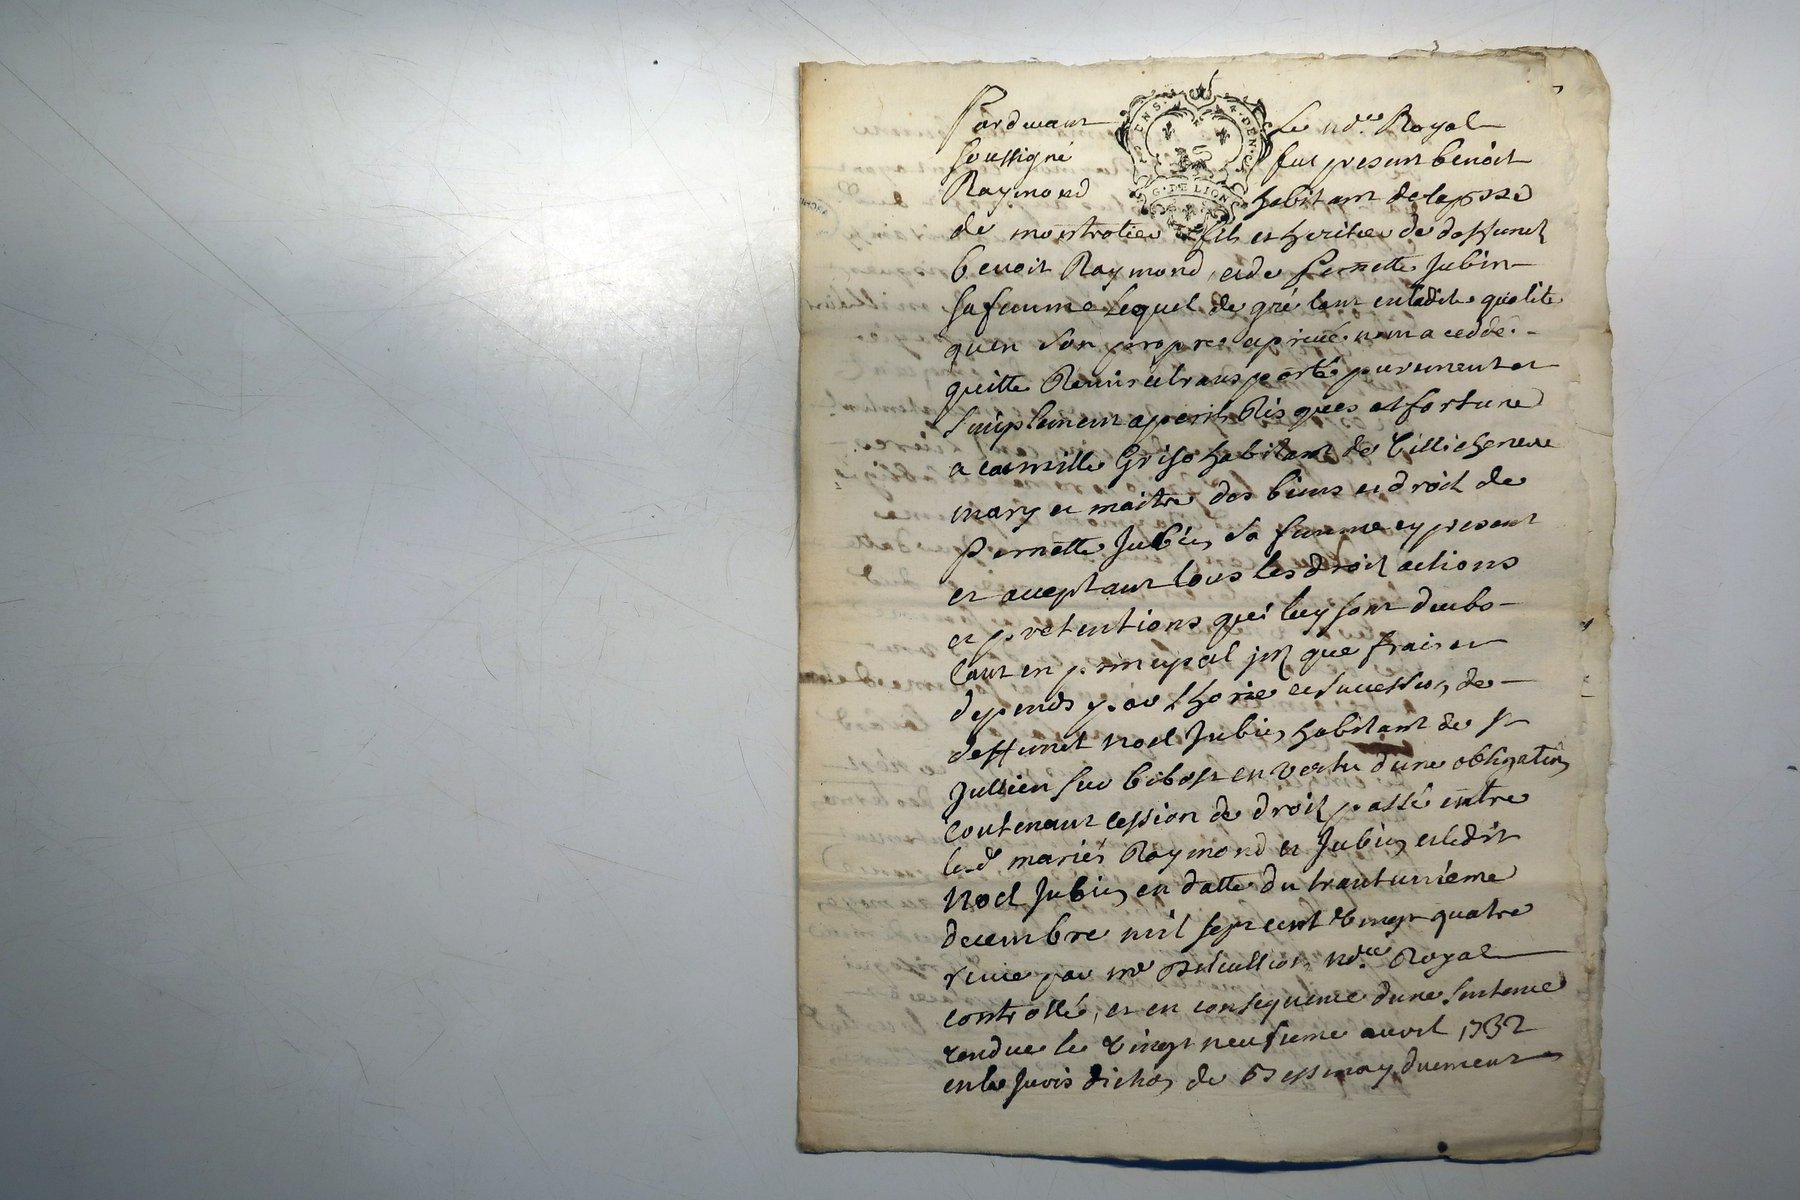 Pardevant le no.re Royal
soussigné fut present benoit
Raymond habitant de la psse
de montrotier fils et heritier de deffunct
benoit Raymond et de Pernette Jubin
sa femme lequel de gré tant en ladite qualité
quen son propre et privé nom a ceddé
quitte Remis et transporté purement et
simplement a perils Risques et fortune
a camille habitant de Villecheneve
mary et maitre des biens et droit de
Pernette Jubin sa femme cy present
et acceptant tous les droit actions
et pretentions qui luy sont deubs
tant en principal que frais et
depends par lhorie et succession de
deffunct noel Jubin habitant de st
Jullien sur bibost en vertu dune obligation
contenant cession de droit passé entre
lesd mariés Raymond et Jubin et ledit
Noel Jubin en datte du trantunieme
decembre mil sept cent vingt quatre
receue par me no.re Royal
controllé, et en consequence dune sentence
rendue le vingt neufieme avril 1732
en la Jurisdiction de duement
G. DE LION